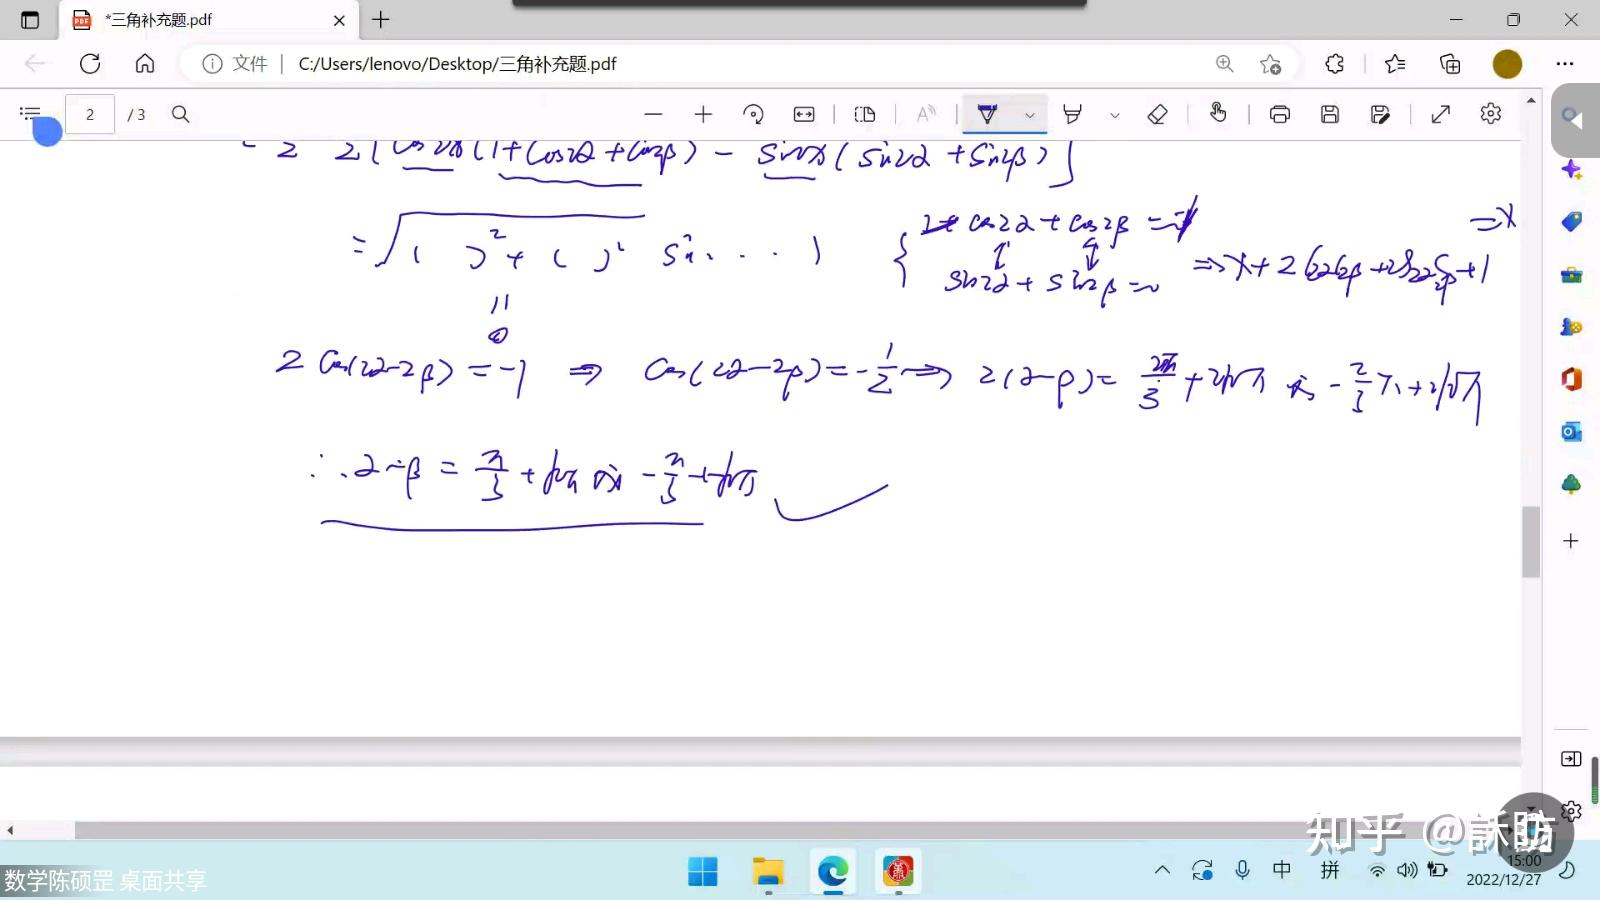 *三角补充题.pdf
文件 | C:/Users/lenovo/Desktop/三角补充题.pdf
2 / 3
2 2[cos2x(1+cos2α+cos2β) - sin2x(sin2α+sin2β)]
=√( )²+( )² sin(. . . . )
cos2α+cos2β=-1 ⇒
sin2α+sin2β=0 ⇒
2cos(2α-2β)=-1 ⇒ cos(2α-2β)=-1/2 ⇒ 2(α-β)=2π/3+2kπ 或 -2/3π+2kπ
∴α-β=π/3+kπ 或 -π/3+kπ
知乎
数学陈硕罡 桌面共享
中 拼
15:00
2022/12/27